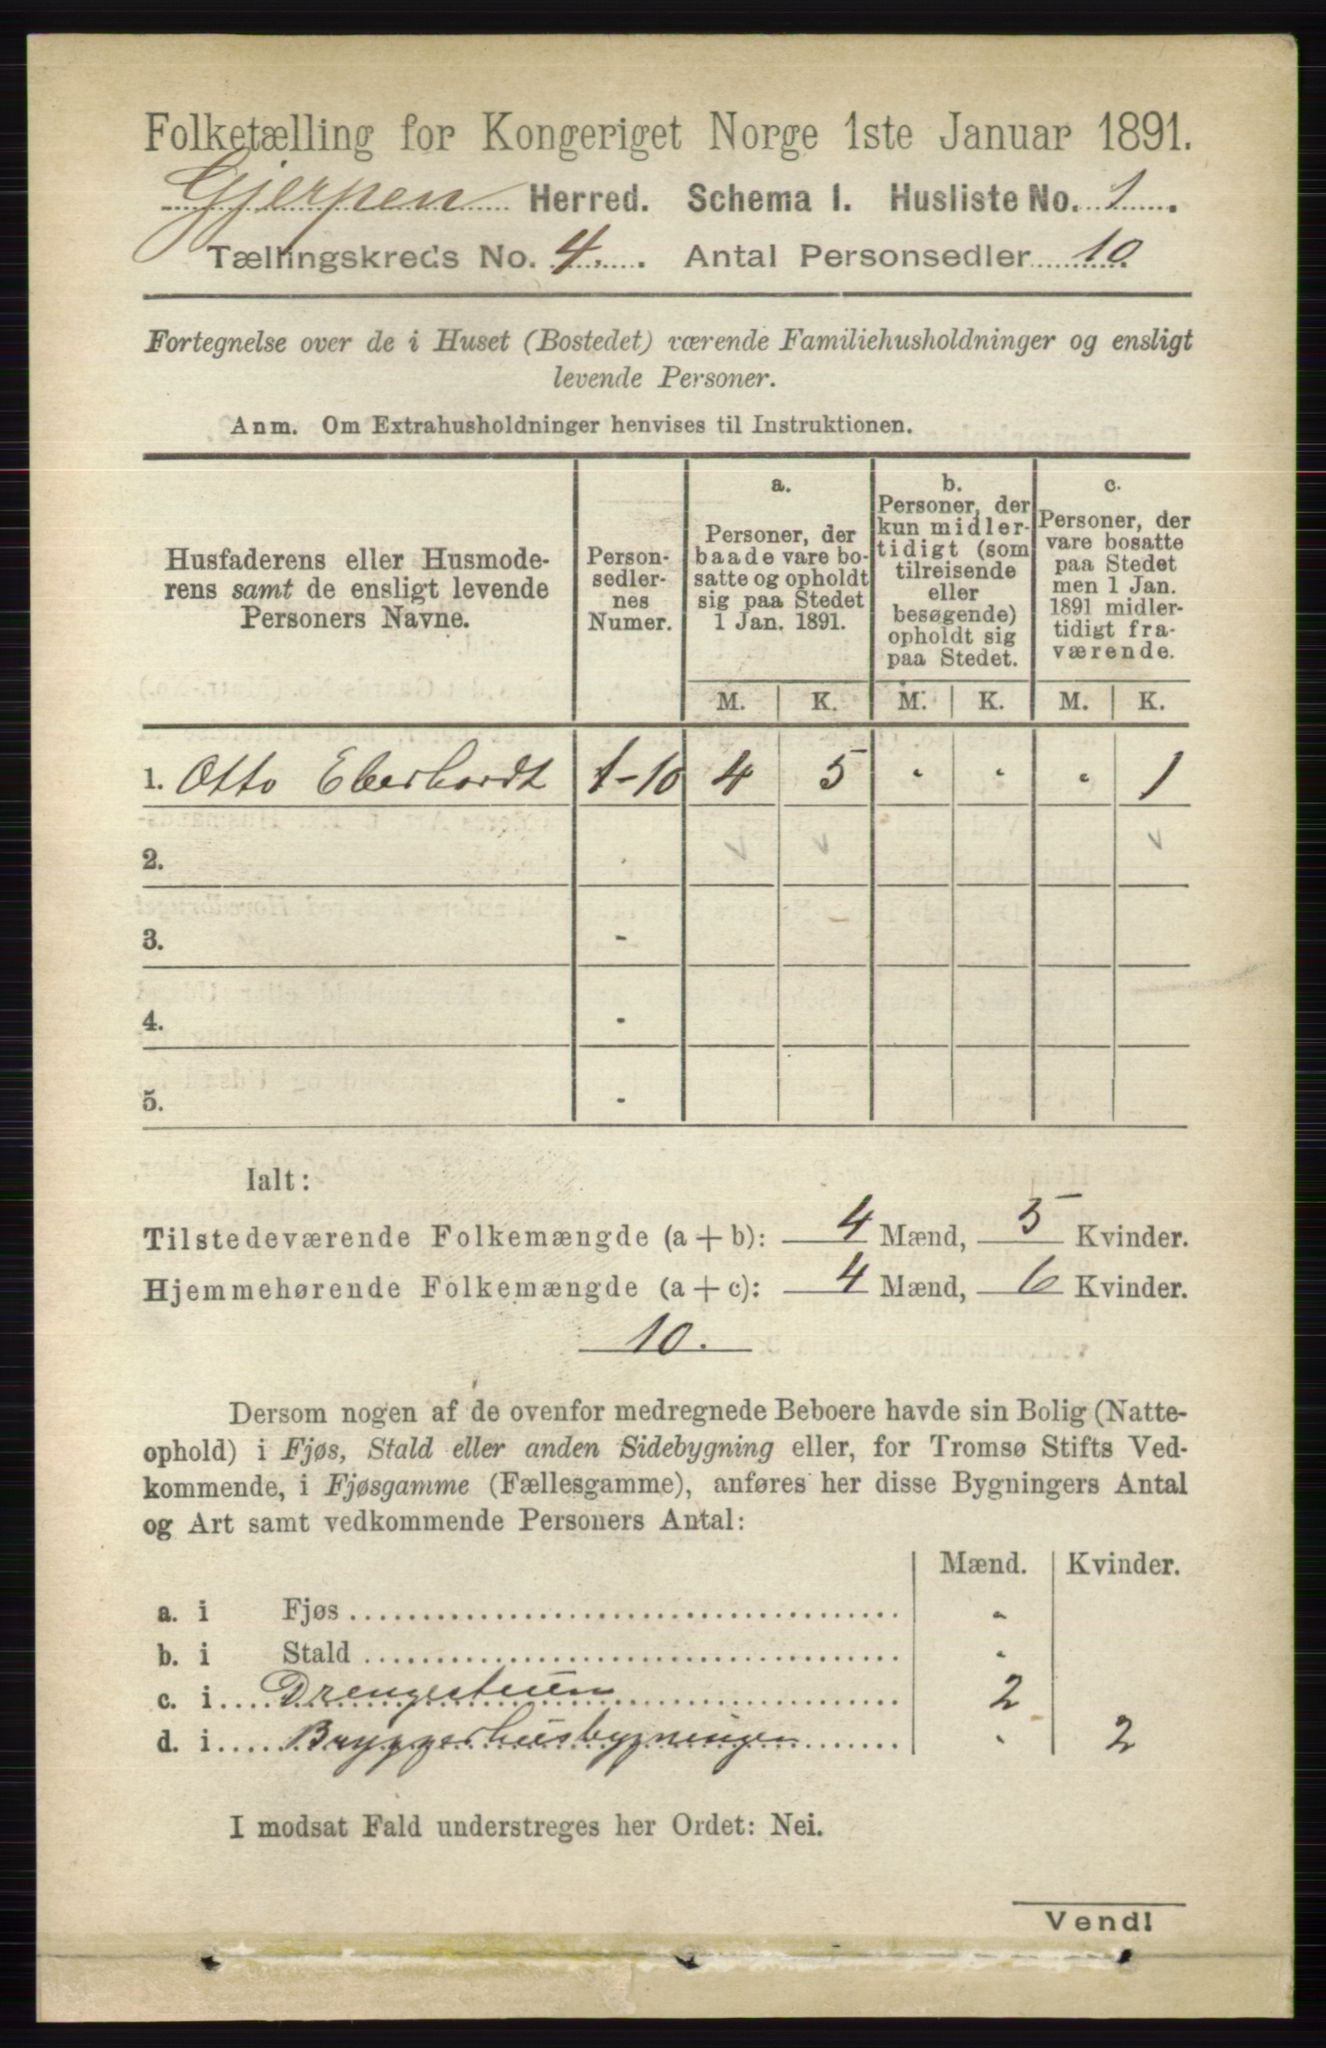 Folketælling for Kongeriget Norge 1ste Januar 1891.
Gjerpen Herred. Schema I. Husliste No. 1.
Tællingskreds No. 4. Antal Personsedler 10
Fortegnelse over de i Huset (Bostedet) værende Familiehusholdninger og ensligt
levende Personer.
Anm. Om Extrahusholdninger henvises til Instruktionen.
Husfaderens eller Husmode-
rens samt de ensligt levende
Personers Navne.
Person-
sedler-
nes
Numer.
a.
Personer, der
baade vare bo-
satte og opholdt
sig paa Stedet
1 Jan. 1891.
b.
Personer, der
kun midler-
tidigt (som
tilreisende
eller
besøgende)
opholdt sig
paa Stedet.
c.
Personer, der
vare bosatte
paa Stedet
men 1 Jan.
1891 midler-
tidigt fra-
værende.
M. K. M. K. M. K.
1. Otto Eberhardt 1-10 4 5 " " " 1
2.
3. -
4. -
5. -
Ialt:
Tilstedeværende Folkemængde (a + b): 4 Mænd, 5 Kvinder.
Hjemmehørende Folkemængde (a + c): 4 Mænd, 6 Kvinder.
10.
Dersom nogen af de ovenfor medregnede Beboere havde sin Bolig (Natte-
ophold) i Fjøs, Stald eller anden Sidebygning eller, for Tromsø Stifts Ved-
kommende, i Fjøsgamme (Fællesgamme), anføres her disse Bygningers Antal
og Art samt vedkommende Personers Antal:
Mænd. Kvinder.
a. i Fjøs -
b. i Stald -
c. i Drengestuen 2
d. i Bryggerhusbygningen - 2
I modsat Fald understreges her Ordet: Nei.
Vend!